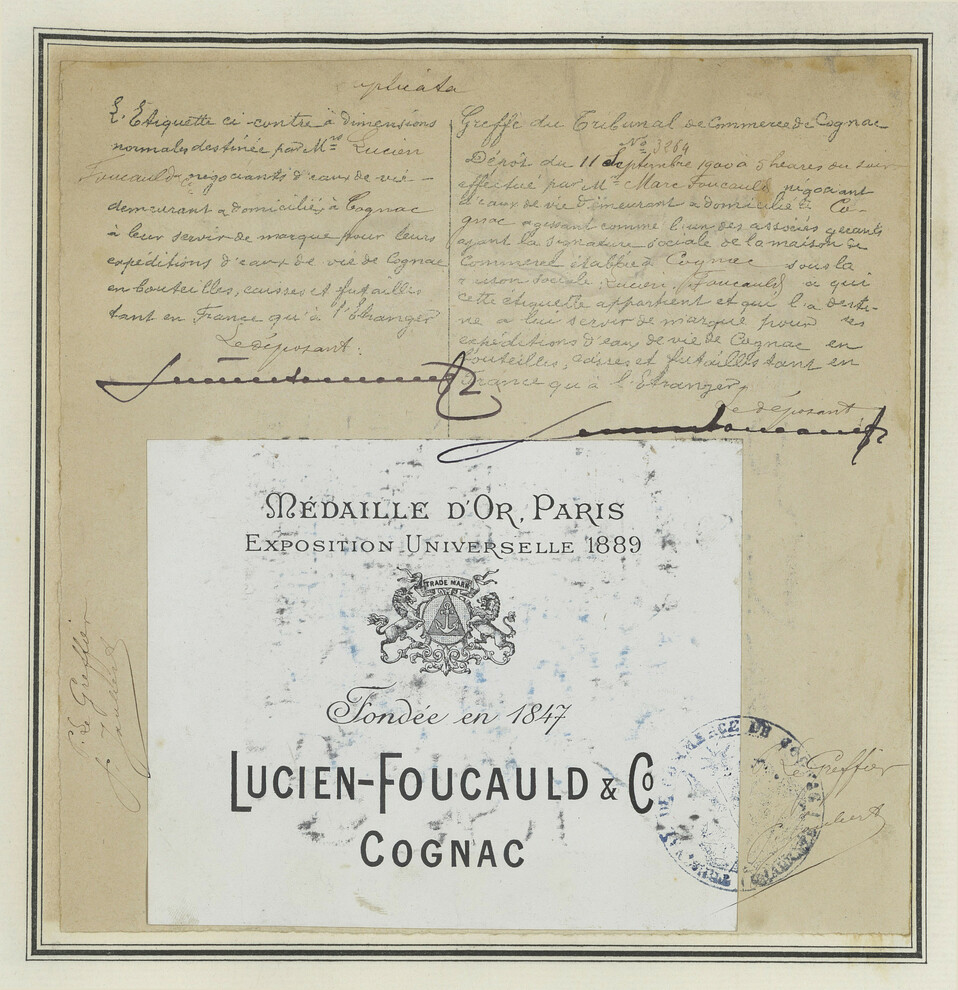 L'Etiquette ci-contre à dimensions
normales destinée par Mrs Lucien
Foucauld négociants d'eaux de vie
demeurant & domiciliés à Cognac
à leur servir de marque pour leurs
expéditions d'eaux de vie de Cognac
en bouteilles, caisses et futailles
tant en France qu'à l'Etranger
Le déposant:
Greffe du Tribunal de Commerce de Cognac
No 3264
Dépôt du 11 Septembre 1900 à 5 heures du soir
effectué par Mr Marc Foucauld négociant
d'eaux de vie demeurant & domicilié à Co-
gnac agissant comme l'un des associés gérants
ayant la signature sociale de la maison de
Commerce établie à Cognac sous la
raison sociale: Lucien Foucauld à qui
cette étiquette appartient et qui l'a desti-
né à lui servir de marque pour ses
expéditions d'eaux de vie de Cognac en
bouteilles, caisses et futailles tant en
France qu'à l'Etranger
Le déposant
MÉDAILLE D'OR, PARIS
EXPOSITION UNIVERSELLE 1889
TRADE MARK
Fondée en 1847
LUCIEN-FOUCAULD & Co
COGNAC
Le Greffier
Le Greffier